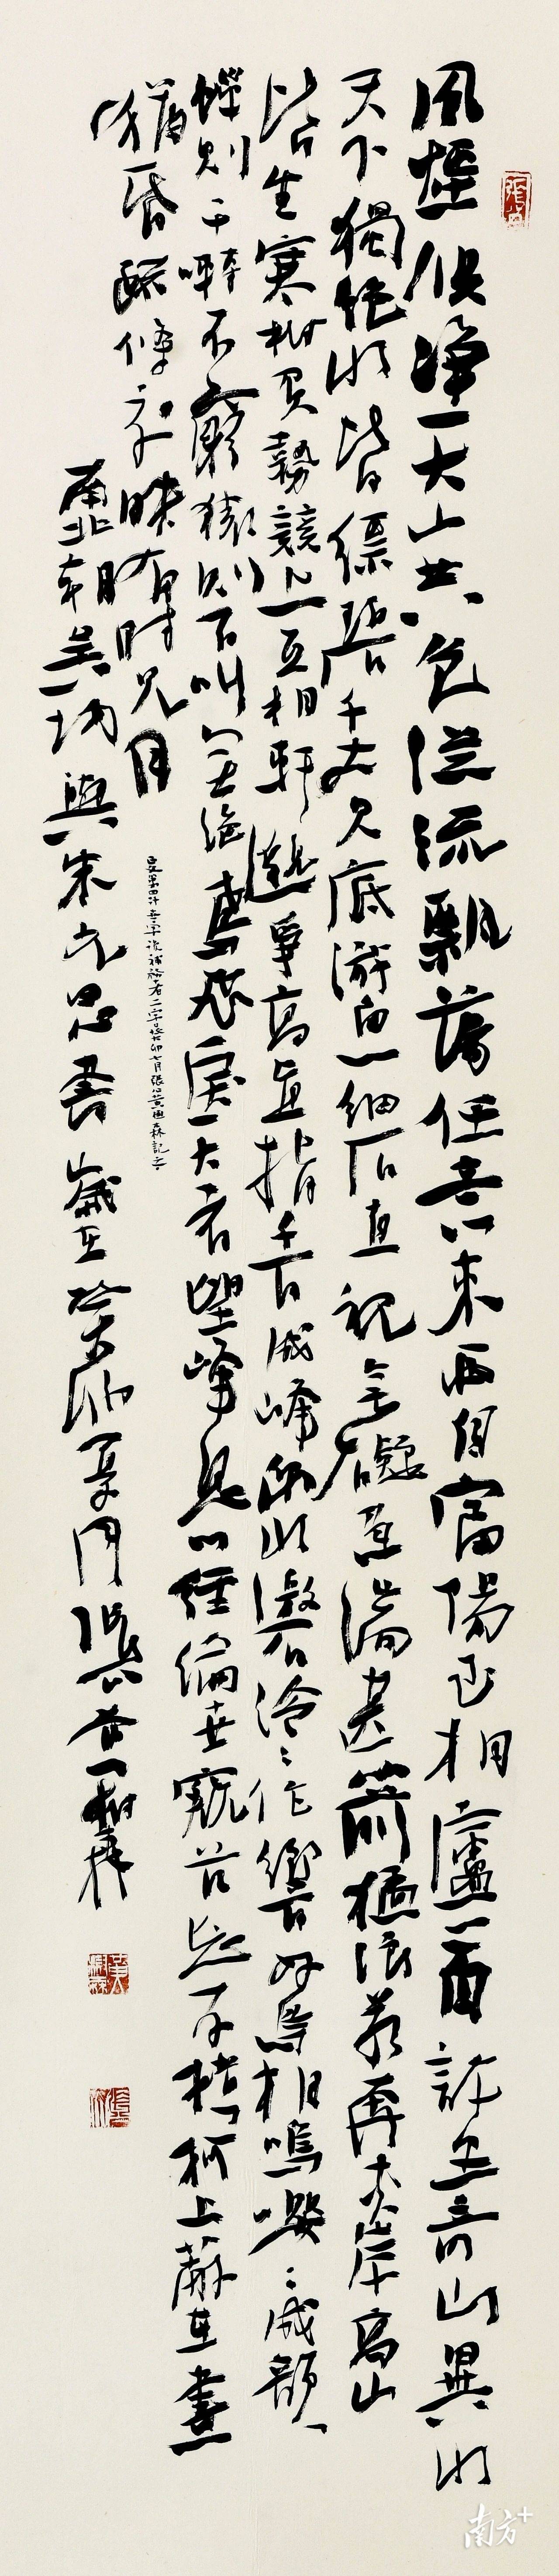 風煙俱淨天山共色從流飄蕩任意東西自富陽至桐廬一百許里奇山異水
天下獨絕水皆縹碧千丈見底游魚細石直視無礙急湍甚箭猛浪若奔夾岸高山
皆生寒樹負勢競上互相軒邈爭高直指千百成峰泉水激石泠泠作響好鳥相鳴嚶嚶成韻
蟬則千囀不窮猿則百叫無絕鳶飛戾天者望峰息心經綸世窺谷忘反橫柯上蔽在晝
猶昏疏條交映有時見日
第四行世字後補務者二字癸卯七月
南北朝吳均與朱元思書歲在癸卯夏月
南方+